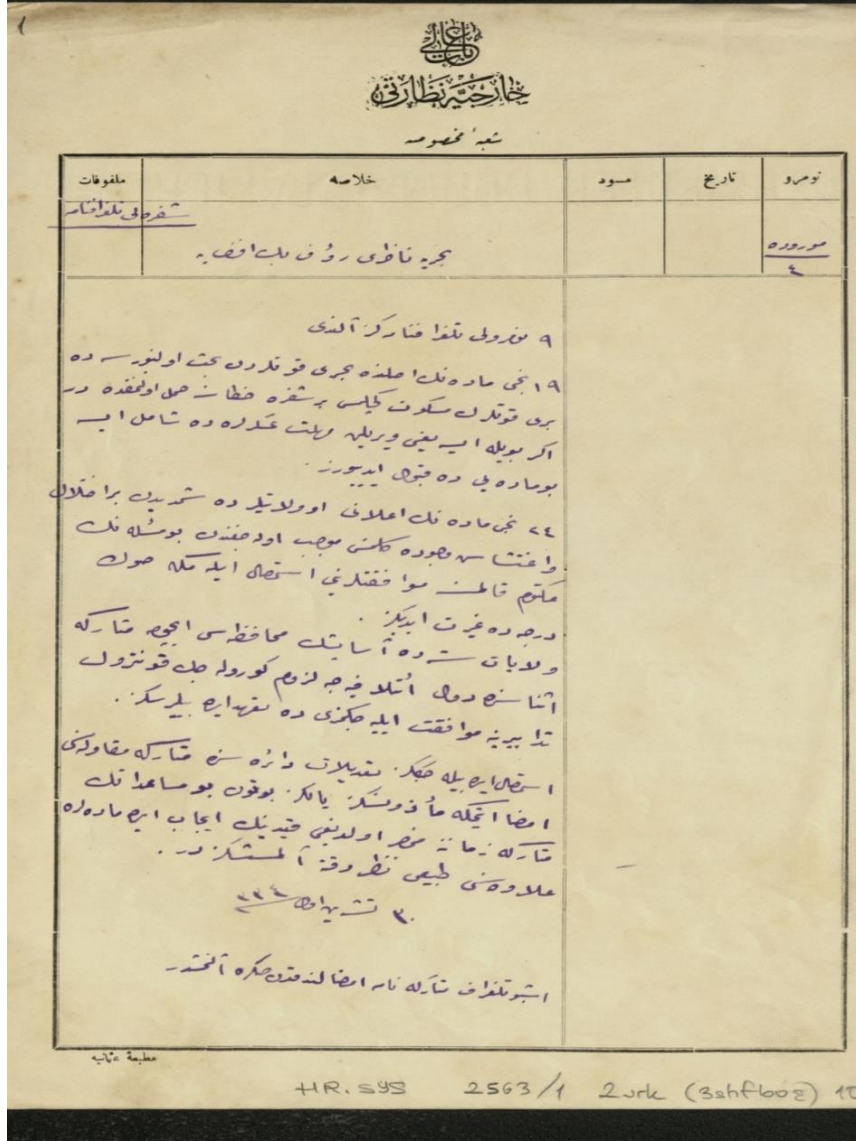 ١
باب عالی
خارجیه نظارتی
شعبهٔ مخصوصه
نومرو
تاریخ
مسود
خلاصه
ملفوفات
شفره لی تلغرافنامه
موروده
٤
بحریه ناظری رؤف بك افندی یه
٩ نومرولی تلغرافنامه کز آلندی
١٩ نجی ماده نك اصلنده بحری قوتلردن بحث اولنیورسه ده
بری قوتلرك مسکوت کچلمسی بر شفره خطاسنه حمل اولنمقده در
اکر بویله ایسه یعنی ویریلن مهلت عسکره ده شامل ایسه
بو ماده یی ده قبول ایدییورز.
٢٤ نجی ماده نك اعلانی او ولایتلرده شمدیدن بر اختلال
و اغتشاش وجوده کلمسنی موجب اوله جغندن بو مسئله نك
مکتوم قالمسنه موافقتلرینی استحصال ایله مکه صوك
درجه ده غیرت ایدیکز.
ولایات سته ده آسایشك محافظه سی ایچون متارکه
اثناسنده دول ائتلافیه جه لزوم کوروله جك قونترول
تدابیرینه موافقت ایلیه جکمزی ده تعهد ایده بیلیرسکز.
استحصال ایده بیله جککز تعدیلات دائره سنده متارکه مقاوله سنی
امضا ایتمکه مأذونسکز یالکز بوتون بو مساعداتك
متارکه زماننه منحصر اولدیغی قیدینك ایجاب ایدن ماده لره
علاوه سنی طبیعی نظر دقته آلمشسکزدر.
٣٠ تشرین اول ٣٣٤
اشبو تلغراف متارکه نامه امضالندقدن صکره آلنمشدر
مطبعهٔ عثمانیه
HR. SYS 2563/1 2 vrk (3shf boş)